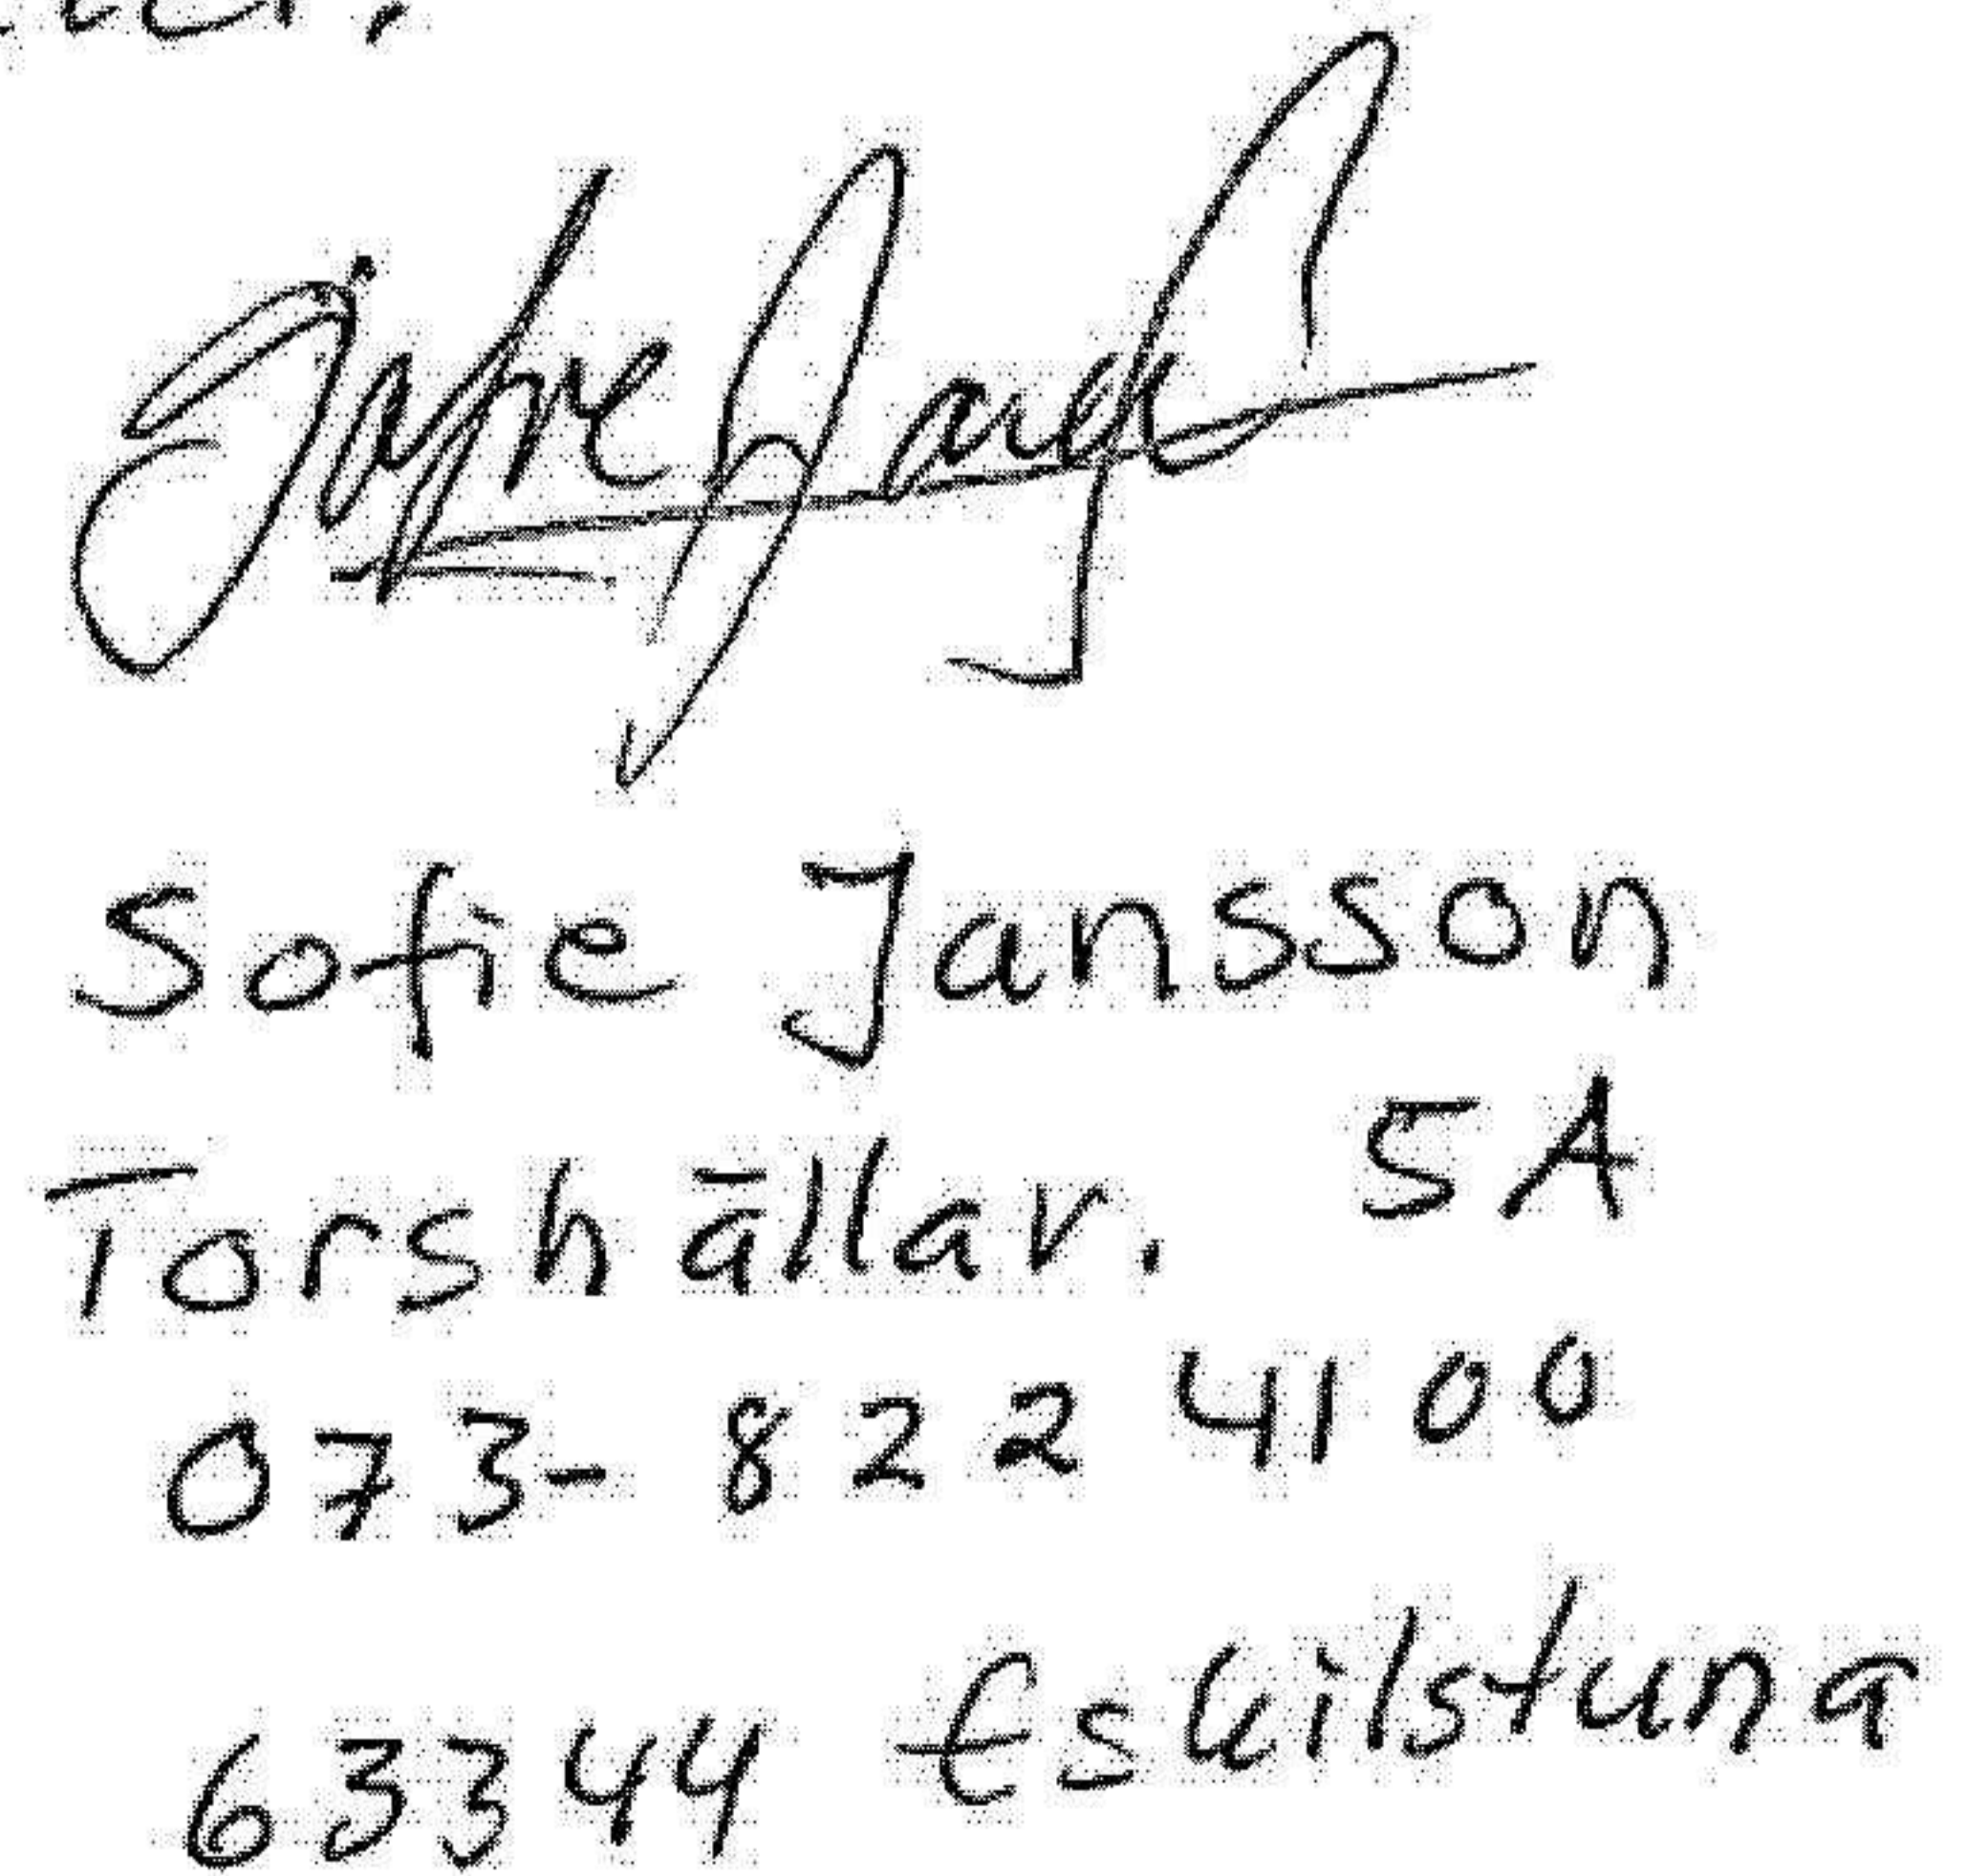 Sofie Jansson
Torshällav. 5A
073-822 4100
63344 Eskilstuna